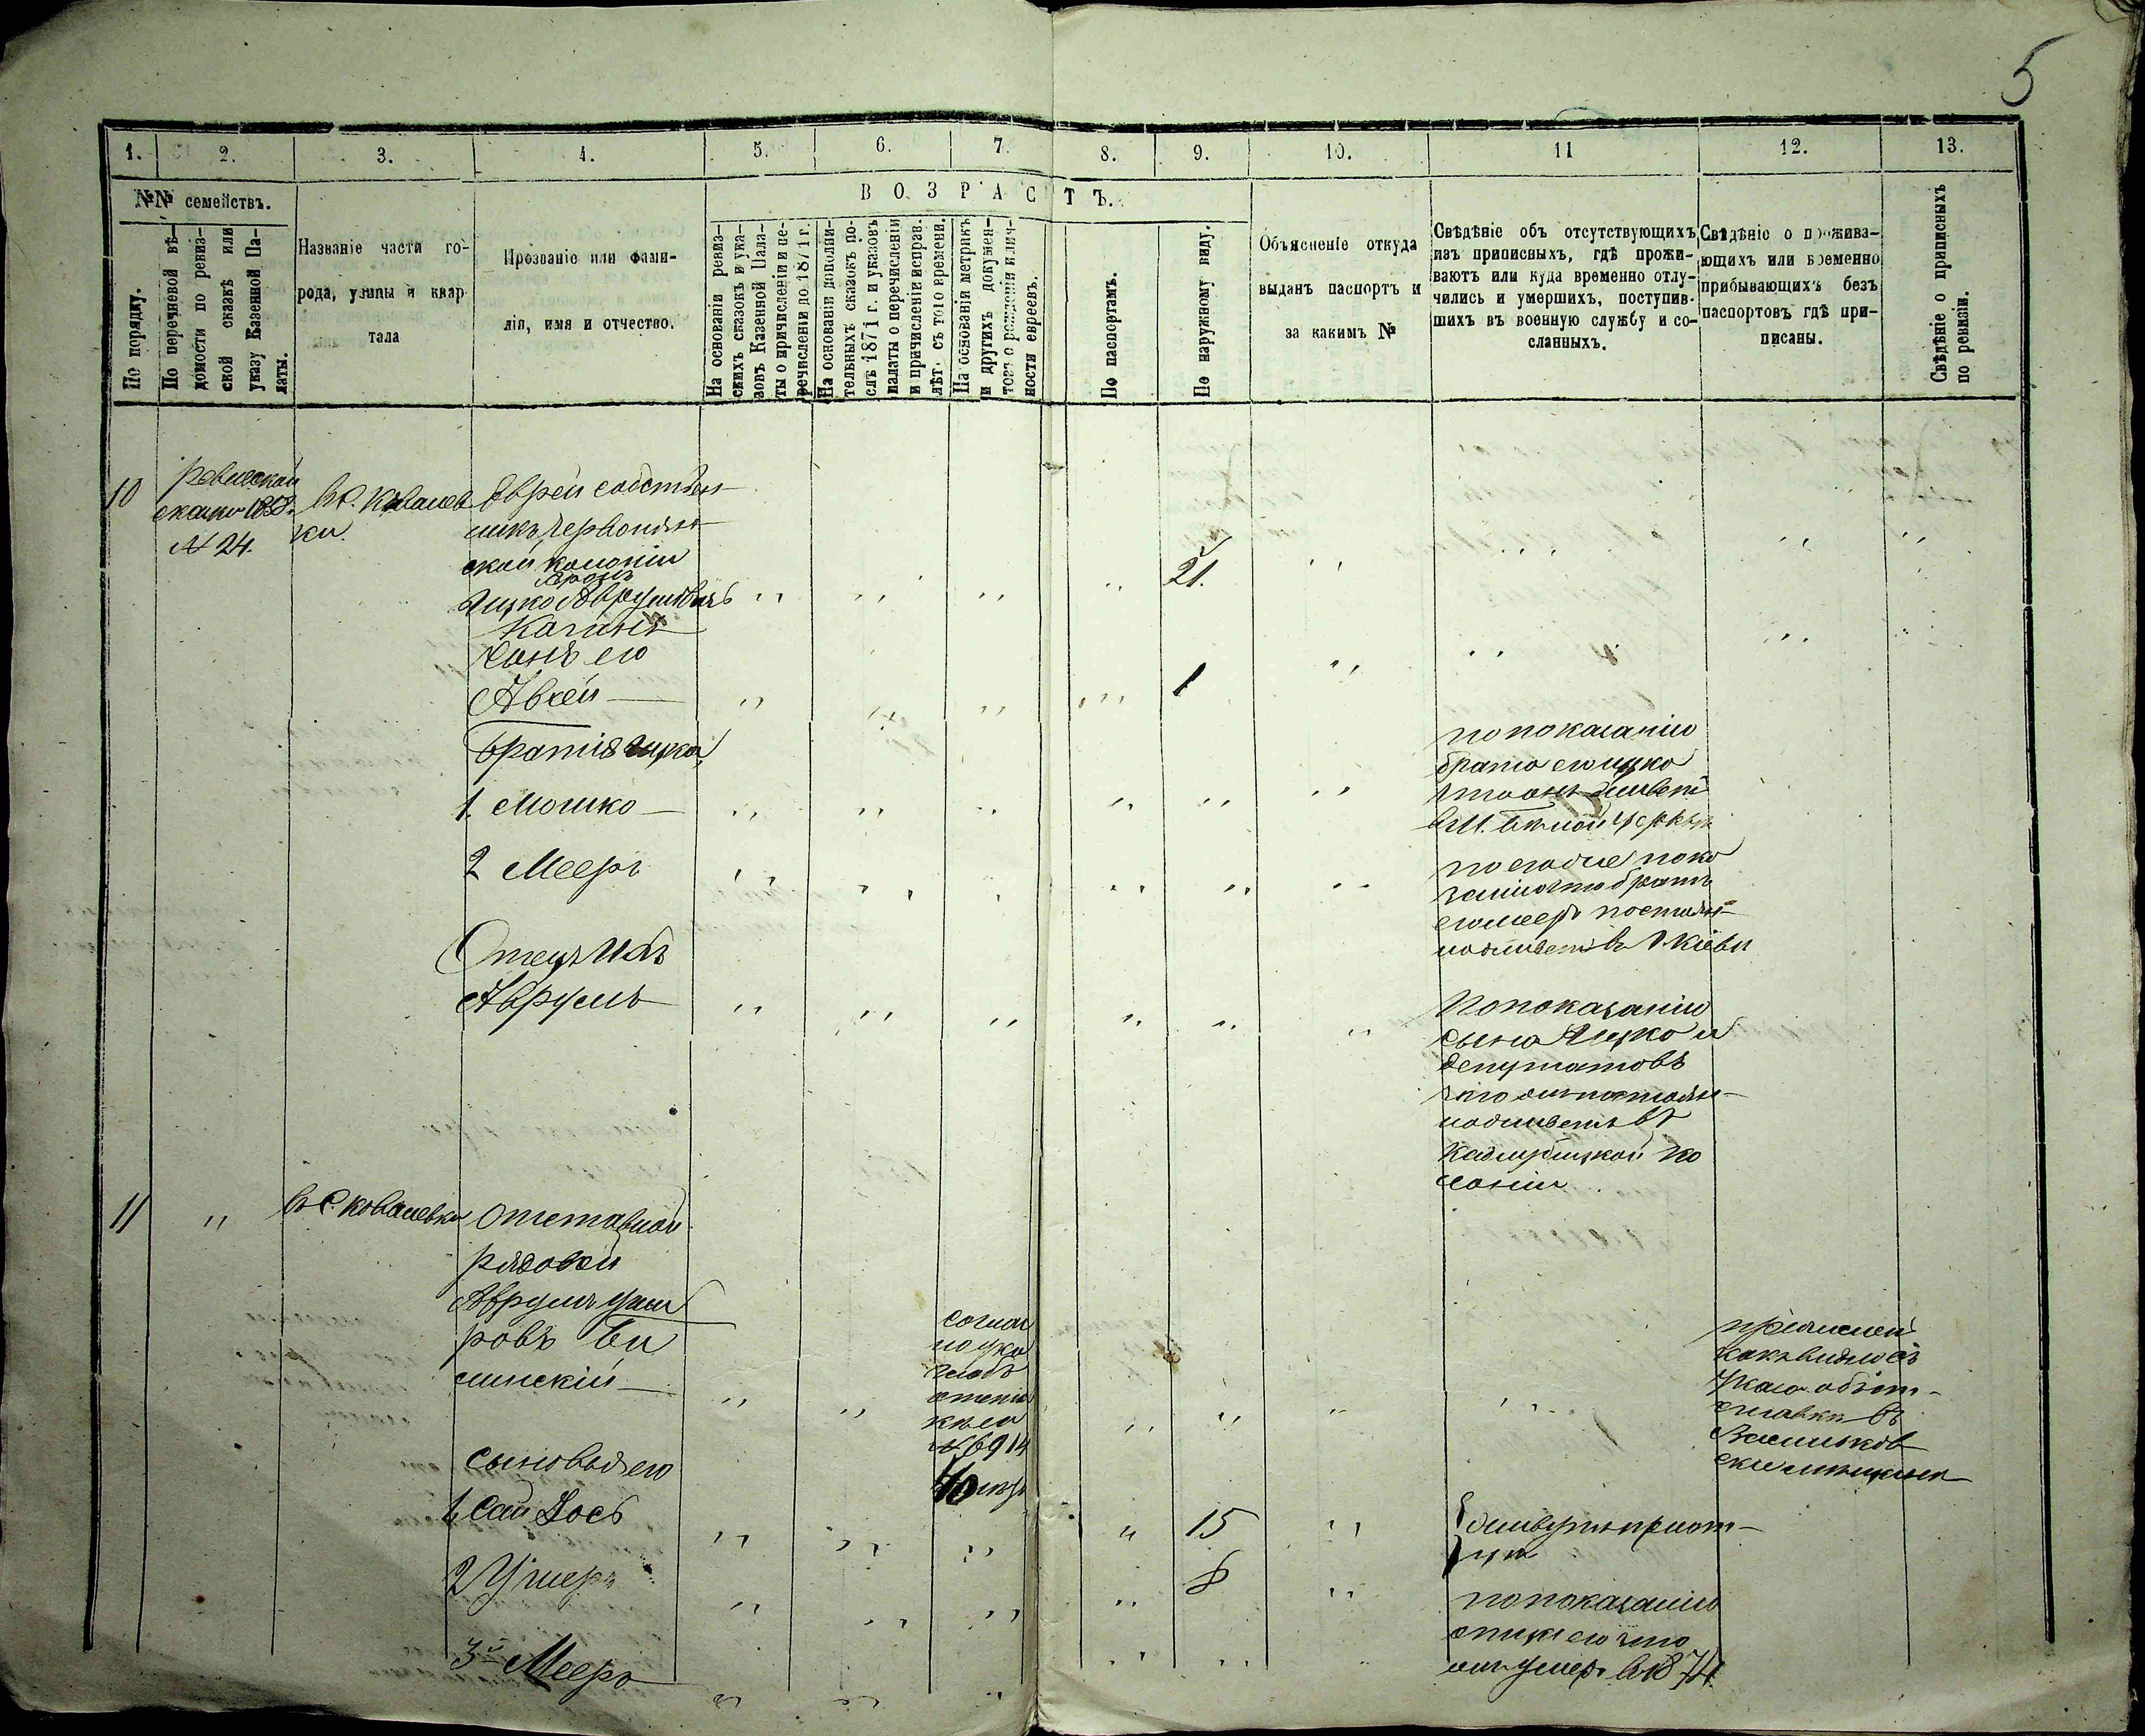 5
1. 2. 3. 4. 5. 6. 7. 8. 9. 10. 11 12. 13.
№№ семействъ.
ВОЗРАСТЪ.
По порядку.
По перечневой вѣ-
домости по ревиз-
ской сказкѣ или
указу Казенной Па-
латы.
Названіе части го-
рода, улицы и квар
тала
Прозваніе или фами-
лія, имя и отчество.
На основаніи ревиз-
скихъ сказокъ и ука-
зовъ Казенной Пала-
ты о причисленіи и пе-
речисленіи до 1871 г.
На основаніи дополни-
тельныхъ сказокъ по-
слѣ 1871 г. и указовъ
палаты о перечисленіи
и причисленіи исправ.
лѣт. съ того времени.
На основаніи метрикъ
и другихъ докумен-
товъ о рожденіи и лич-
ности евреевъ.
По паспортамъ.
По наружному виду.
Объясненіе откуда
выданъ паспортъ и
за какимъ №
Свѣдѣніе объ отсутствующихъ
изъ приписныхъ, гдѣ прожи-
ваютъ или куда временно отлу-
чились и умершихъ, поступив-
шихъ въ военную службу и со-
сланныхъ.
Свѣдѣніе о прожива-
ющихъ или временно
прибывающихъ безъ
паспортовъ гдѣ при-
писаны.
Свѣдѣніе о приписныхъ
по ревизіи.
10
ревизской
сказки 1858
№ 24.
въ с. Ковалев
ки.
Еврей собствен-
никъ
ской колоніи
Ицко Аврумовъ
Каганъ
21.
Сынъ его
Авсей
1
братія Ицка
1. Мошко
по показанію
брата его Ицко
что онъ живетъ
въ М. бѣлой церквѣ
2 Мееръ
по его же пока
занію что братъ
его Меер постоян-
но живетъ въ г. Кіевѣ
Отецъ Ихъ
Аврумъ
По показанію
сына Ицко и
депутатовъ
что онъ постоян-
но живетъ въ
ко
лоніи
11
въ с. Ковалевки
Отставной
рядовой
Аврумъ Уше
ровъ
линскій
соглас
но ука
за объ
отстав
кѣ его
№ 6914
40 лѣтъ
какъ видно съ
указа объ от-
ставки въ
Васильков
ские мѣщане
Сыновья его
1 Сай Йось
15
живутъ при от-
цѣ
2 Ушеръ
8
3й Мееръ
по показанію
отца его что
онъ умеръ въ 1874